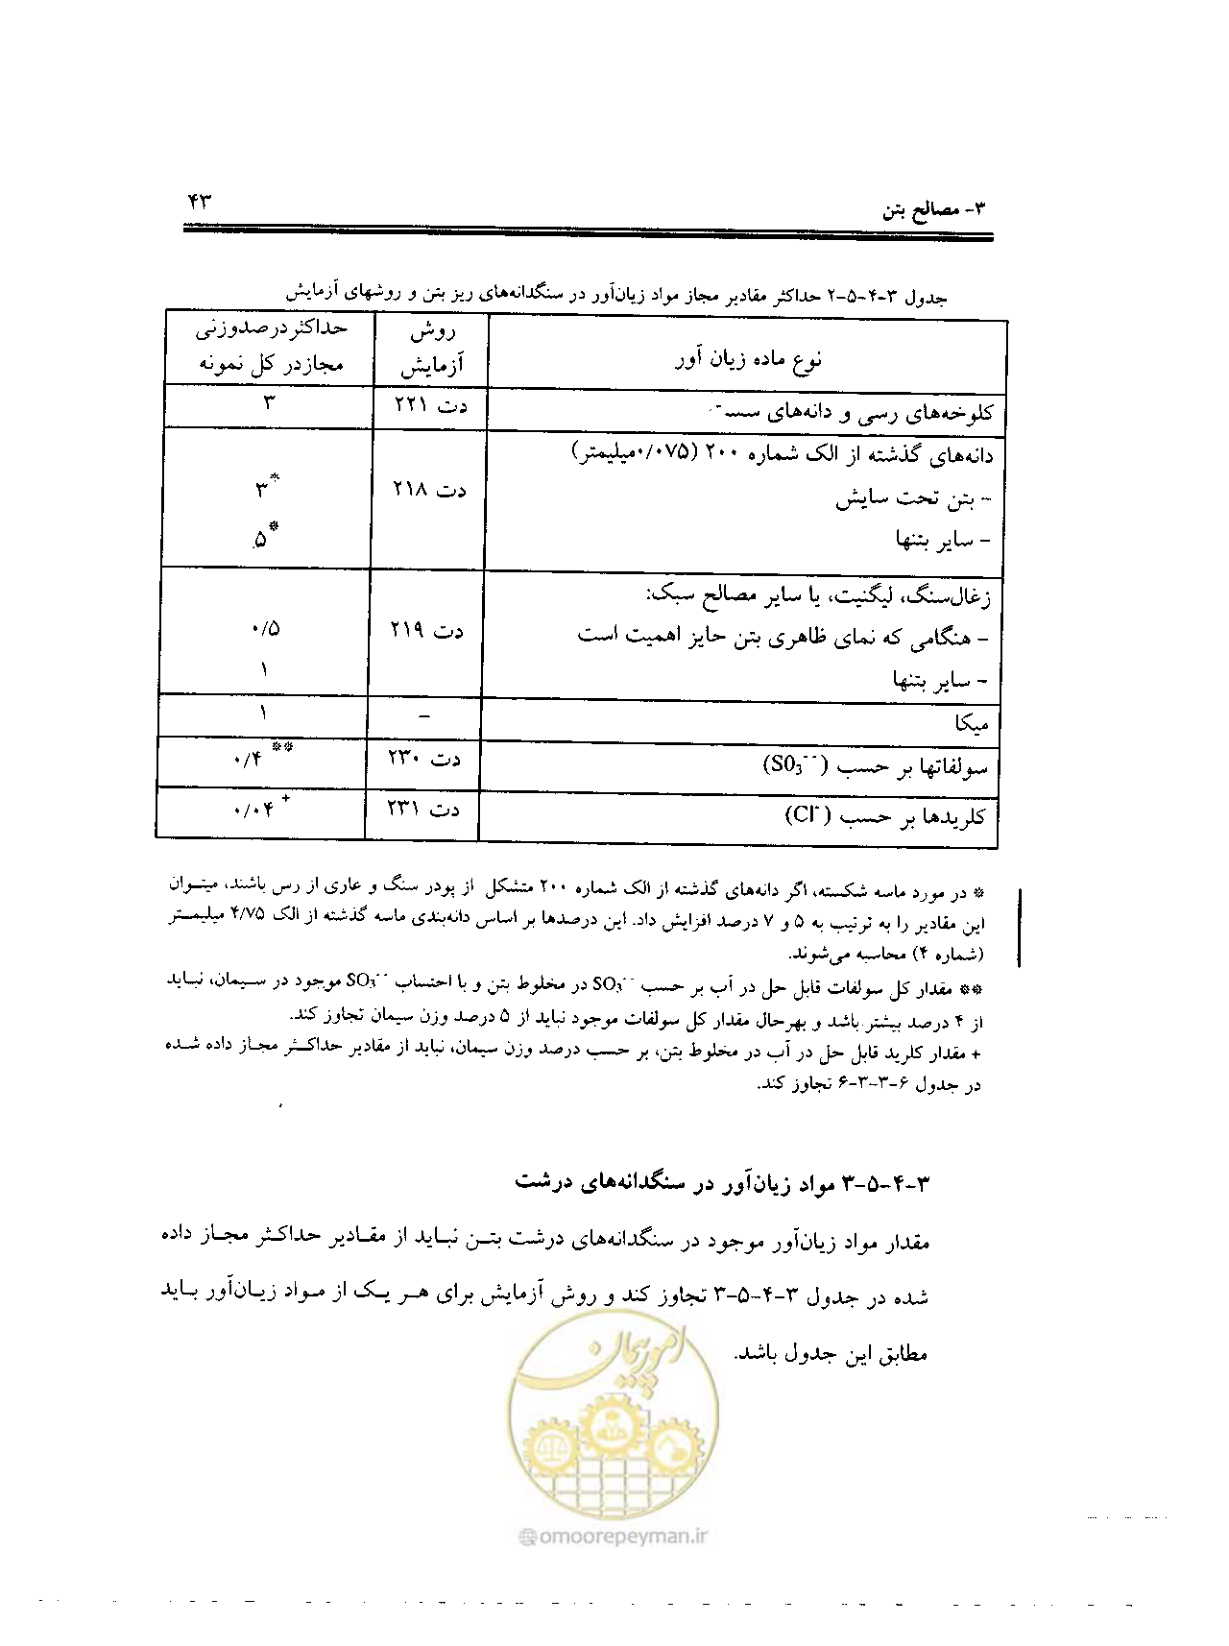 ۳- مصالح بتن
۴۳
جدول ۳-۴-۵-۲ حداکثر مقادیر مجاز مواد زیان‌آور در سنگدانه‌های ریز بتن و روشهای آزمایش
نوع ماده زیان آور
روش
آزمایش
حداکثردرصدوزنی
مجازدر کل نمونه
کلوخه‌های رسی و دانه‌های
دت ۲۲۱
۳
دانه‌های گذشته از الک شماره ۲۰۰ (۰/۰۷۵میلیمتر)
- بتن تحت سایش
دت ۲۱۸
۳*
- سایر بتنها
۵*
زغال‌سنگ، لیگنیت، یا سایر مصالح سبک:
- هنگامی که نمای ظاهری بتن حایز اهمیت است
دت ۲۱۹
۰/۵
- سایر بتنها
۱
میکا
–
۱
سولفاتها بر حسب (SO₃⁻⁻)
دت ۲۳۰
۰/۴**
کلریدها بر حسب (Cl⁻)
دت ۲۳۱
۰/۰۴+
* در مورد ماسه شکسته، اگر دانه‌های گذشته از الک شماره ۲۰۰ متشکل از پودر سنگ و عاری از رس باشند، میتوان
این مقادیر را به ترتیب به ۵ و ۷ درصد افزایش داد. این درصدها بر اساس دانه‌بندی ماسه گذشته از الک ۴/۷۵ میلیمتر
(شماره ۴) محاسبه می‌شوند.
** مقدار کل سولفات قابل حل در آب بر حسب SO₃⁻⁻ در مخلوط بتن و با احتساب SO₃⁻⁻ موجود در سیمان، نباید
از ۴ درصد بیشتر باشد و بهرحال مقدار کل سولفات موجود نباید از ۵ درصد وزن سیمان تجاوز کند.
+ مقدار کلرید قابل حل در آب در مخلوط بتن، بر حسب درصد وزن سیمان، نباید از مقادیر حداکثر مجاز داده شده
در جدول ۶-۳-۳-۶ تجاوز کند.
۳-۴-۵-۳ مواد زیان‌آور در سنگدانه‌های درشت
مقدار مواد زیان‌آور موجود در سنگدانه‌های درشت بتن نباید از مقادیر حداکثر مجاز داده
شده در جدول ۳-۴-۵-۳ تجاوز کند و روش آزمایش برای هر یک از مواد زیان‌آور باید
مطابق این جدول باشد.
امور پیمان
omoorepeyman.ir